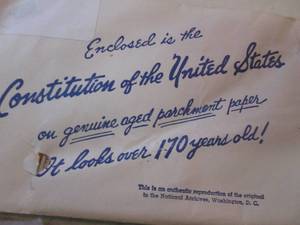 Enclosed is the
Constitution of the United States
on genuine aged parchment paper
It looks over 170 years old!
This is an authentic reproduction of the original
in the National Archives, Washington, D. C.